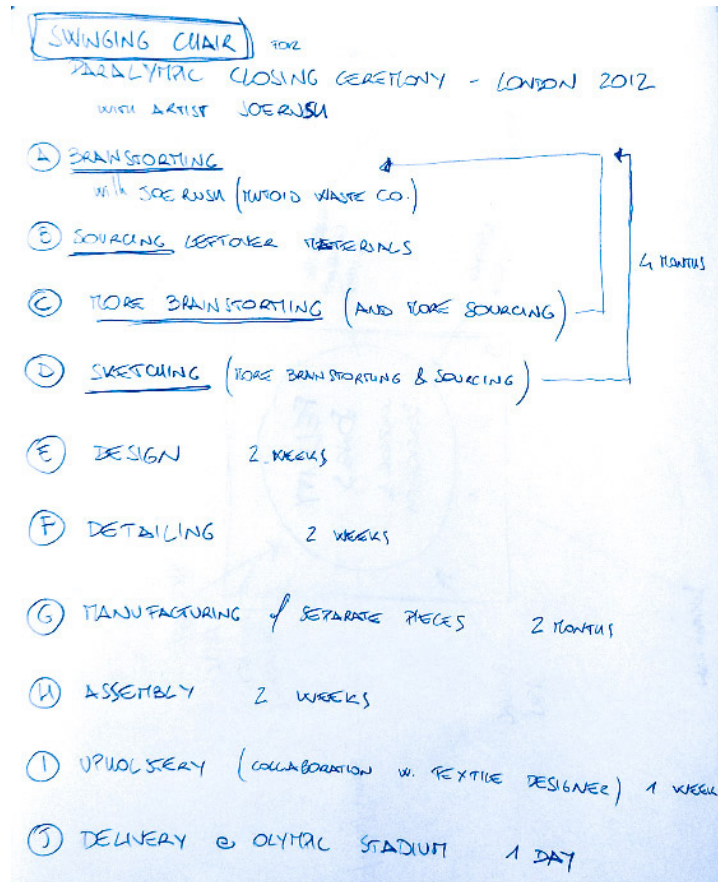 SWINGING CHAIR FOR
PARALYMPIC CLOSING CEREMONY - LONDON 2012
WITH ARTIST JOE RUSH
A BRAINSTORMING
with JOE RUSH (MUTOID WASTE CO.)
B SOURCING LEFTOVER MATERIALS
4 MONTHS
C MORE BRAINSTORMING (AND MORE SOURCING)
D SKETCHING (MORE BRAINSTORMING & SOURCING)
E DESIGN 2 WEEKS
F DETAILING 2 WEEKS
G MANUFACTURING of SEPARATE PIECES 2 MONTHS
H ASSEMBLY 2 WEEKS
I UPHOLSTERY (COLLABORATION W. TEXTILE DESIGNER) 1 WEEK
J DELIVERY @ OLYMPIC STADIUM 1 DAY